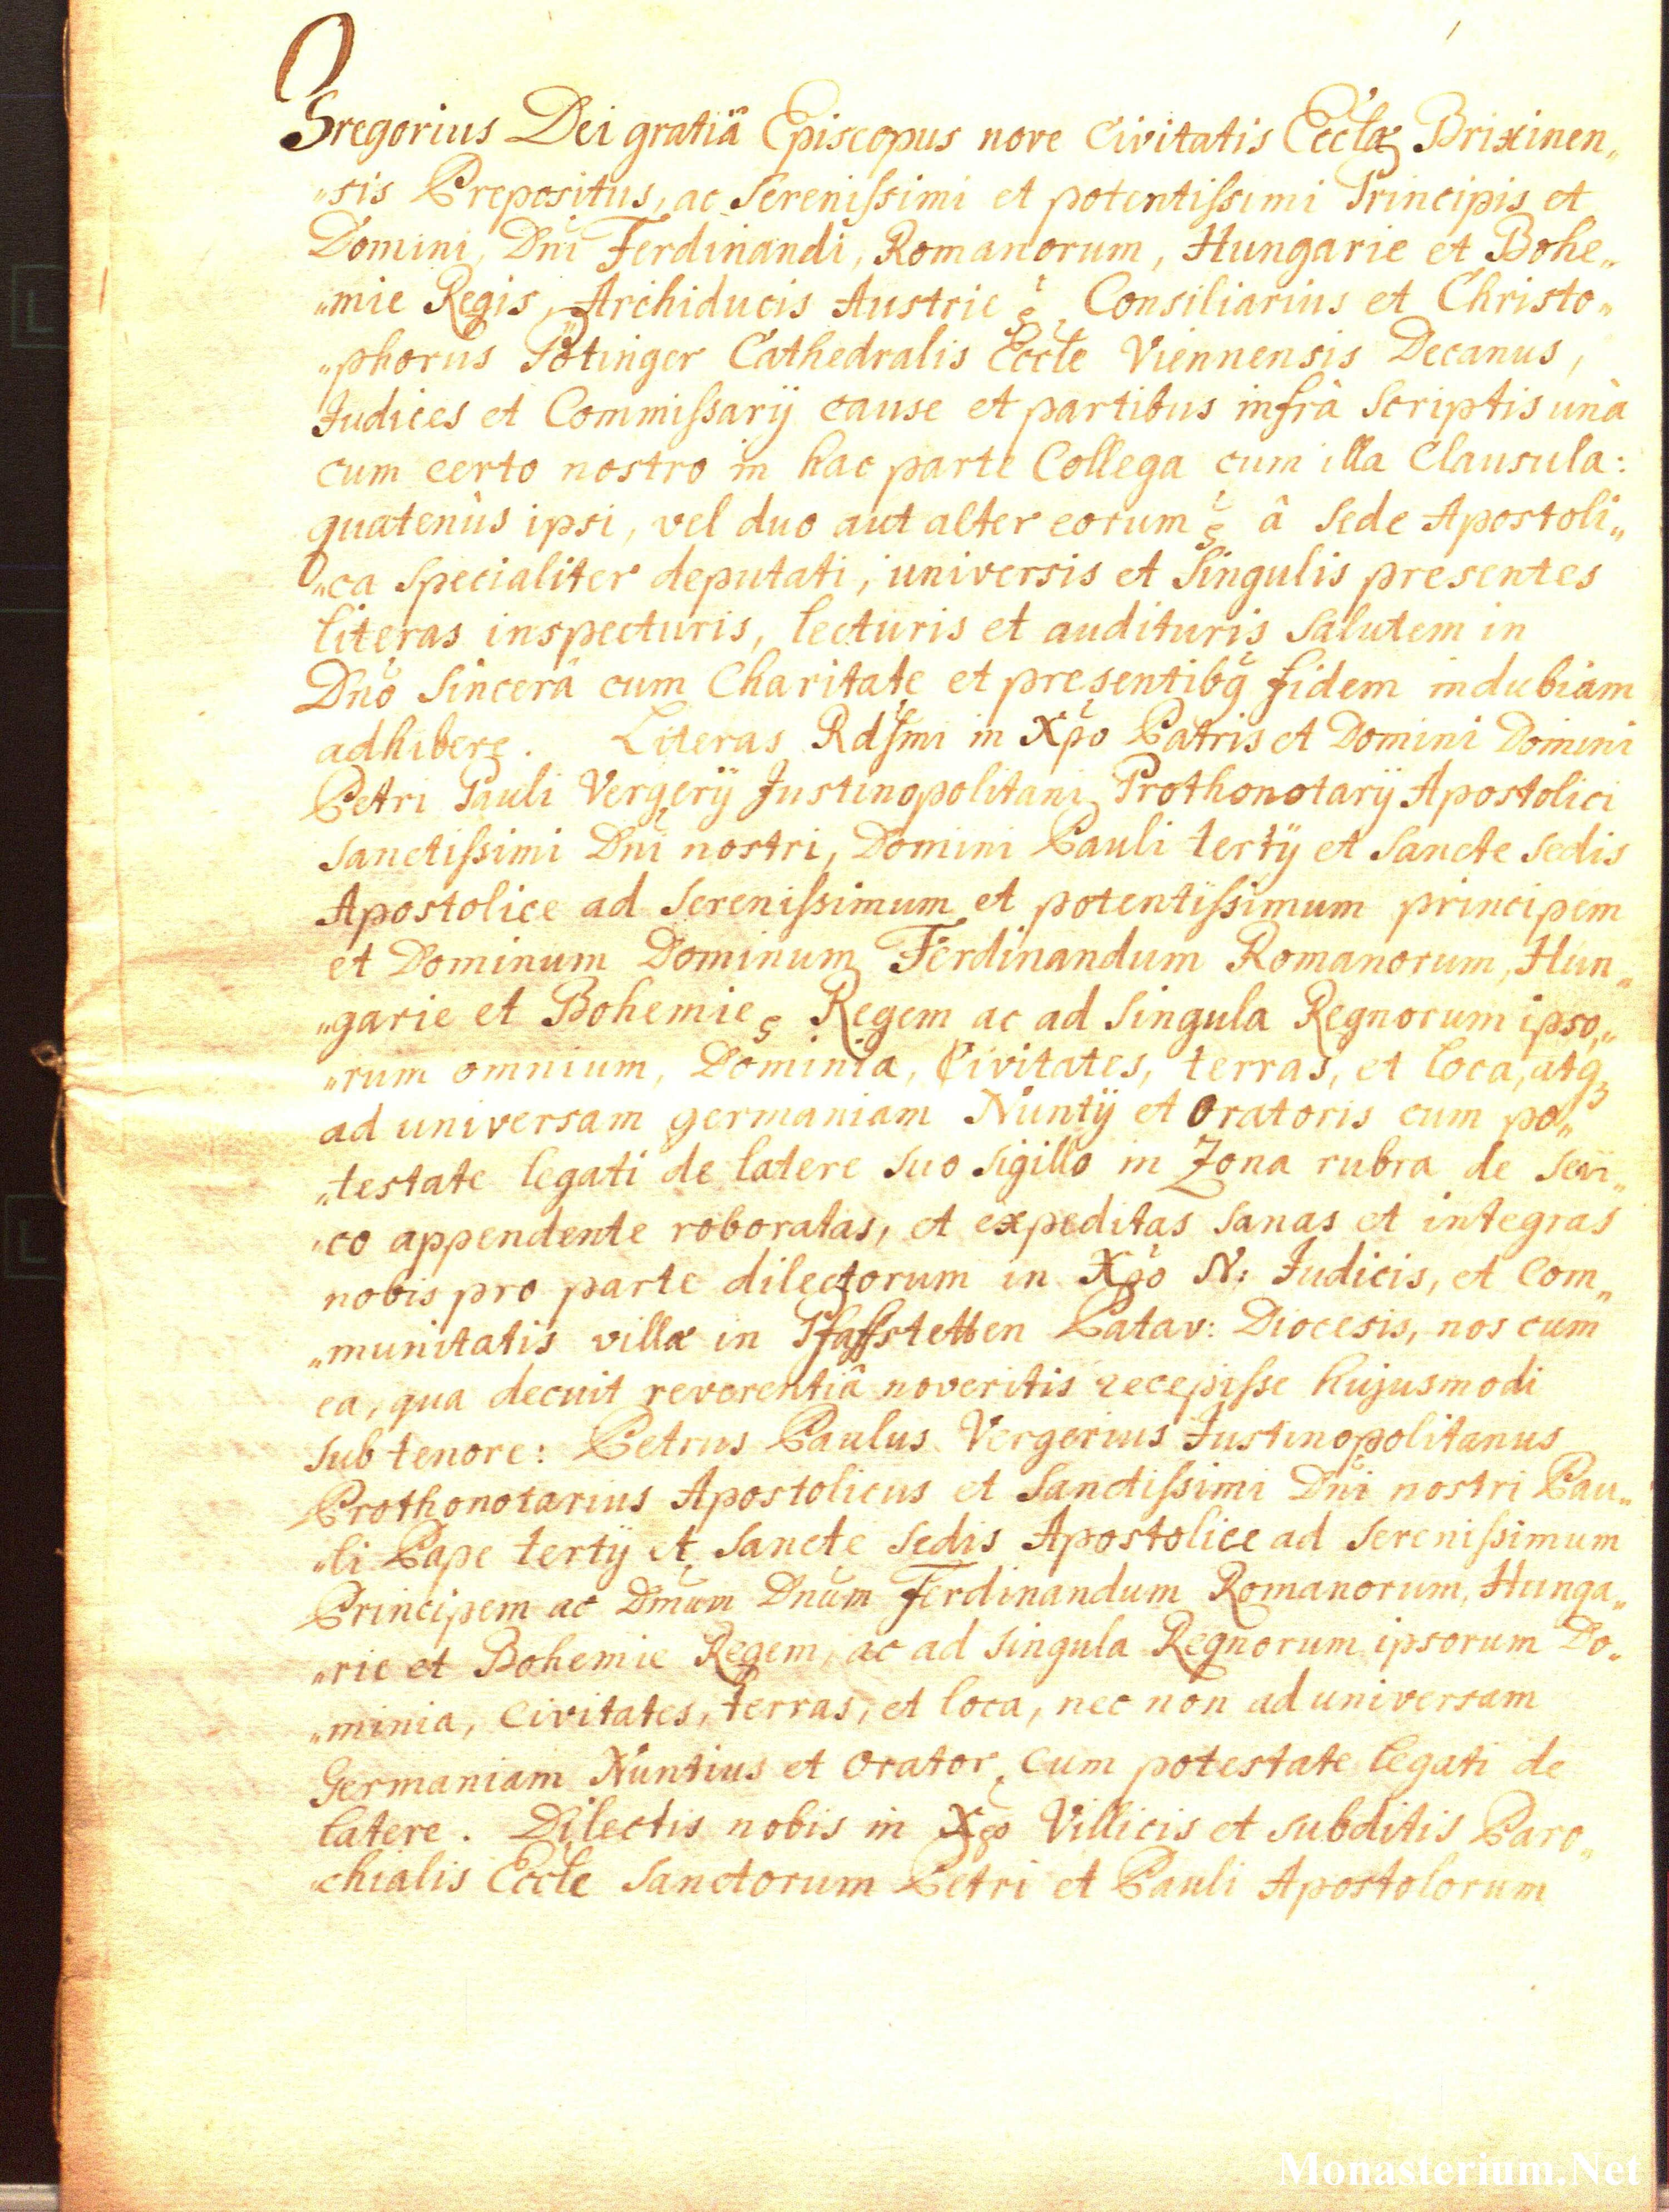 Gregorius Dei gratiâ Episcopus nove Civitatis Eccłæ Brixinen„
„sis Prepositus, ac Serenissimi et potentissimi Principis et
Domini, Dni Ferdinandi, Romanorum, Hungarie et Bohe„
„mie Regis, Archiducis Austrie ꝛc̃. Consiliarius et Christo„
„phorus Pötinger Cathedralis Eccłe Viennensis Decanus,
Judices et Commissarÿ cause et partibus infrà scriptis unà
cum certo nostro in hac parte Collega cum illa Clausula:
quatenùs ipsi, vel duo aut alter eorum ꝛc̃ â Sede Apostoli„
„ca specialiter deputati, universis et singulis presentes
literas inspecturis, lecturis et audituris salutem in
Dño sincerâ cum Charitate et presentibq̃ fidem indubiam
adhibere. Literas Rdsmi in Xp̃o Patris et Domini Domini
Petri Pauli Vergerÿ Justinopolitani Prothonotarÿ Apostolici
Sanctissimi Dñi nostri, Domini Pauli tertÿ et Sancte sedis
Apostolice ad Serenissimum et potentissimum principem
et Dominum Dominum Ferdinandum Romanorum, Hun„
„garie et Bohemie ꝛc Regem ac ad singula Regnorum ipso„
„rum omnium, Dominia, Civitates, terras, et loca, atqꝫ
ad universam germaniam Nuntÿ et Oratoris cum po„
„testate legati de latere suo sigillo in Zona rubra de seri„
„co appendente roboratas, et expeditas sanas et integras
nobis pro parte dilectorum in Xp̃o N: Judicis, et Com„
„munitatis villæ in Pfaffstetten Patav: Diocesis, nos cum
ea, qua decuit reverentiâ noveritis recepisse hujusmodi
sub tenore: Petrus Paulus Vergerius Justinopolitanus
Prothonotarius Apostolicus et Sanctissimi Dñi nostri Pau„
„li Pape tertÿ et Sancte Sedis Apostolice ad Serenissimum
Principem ac Dnũm Dnũm Ferdinandum Romanorum, Hunga„
„rie et Bohemie Regem, ac ad singula Regnorum ipsorum Do„
„minia, Civitates, terras, et loca, nec non ad universam
Germaniam Nuntius et Orator, Cum potestate legati de
latere. Dilectis nobis in Xp̃o Villicis et subditis Paro„
„chialis Eccłe Sanctorum Petri et Pauli Apostolorum
Monasterium.Net